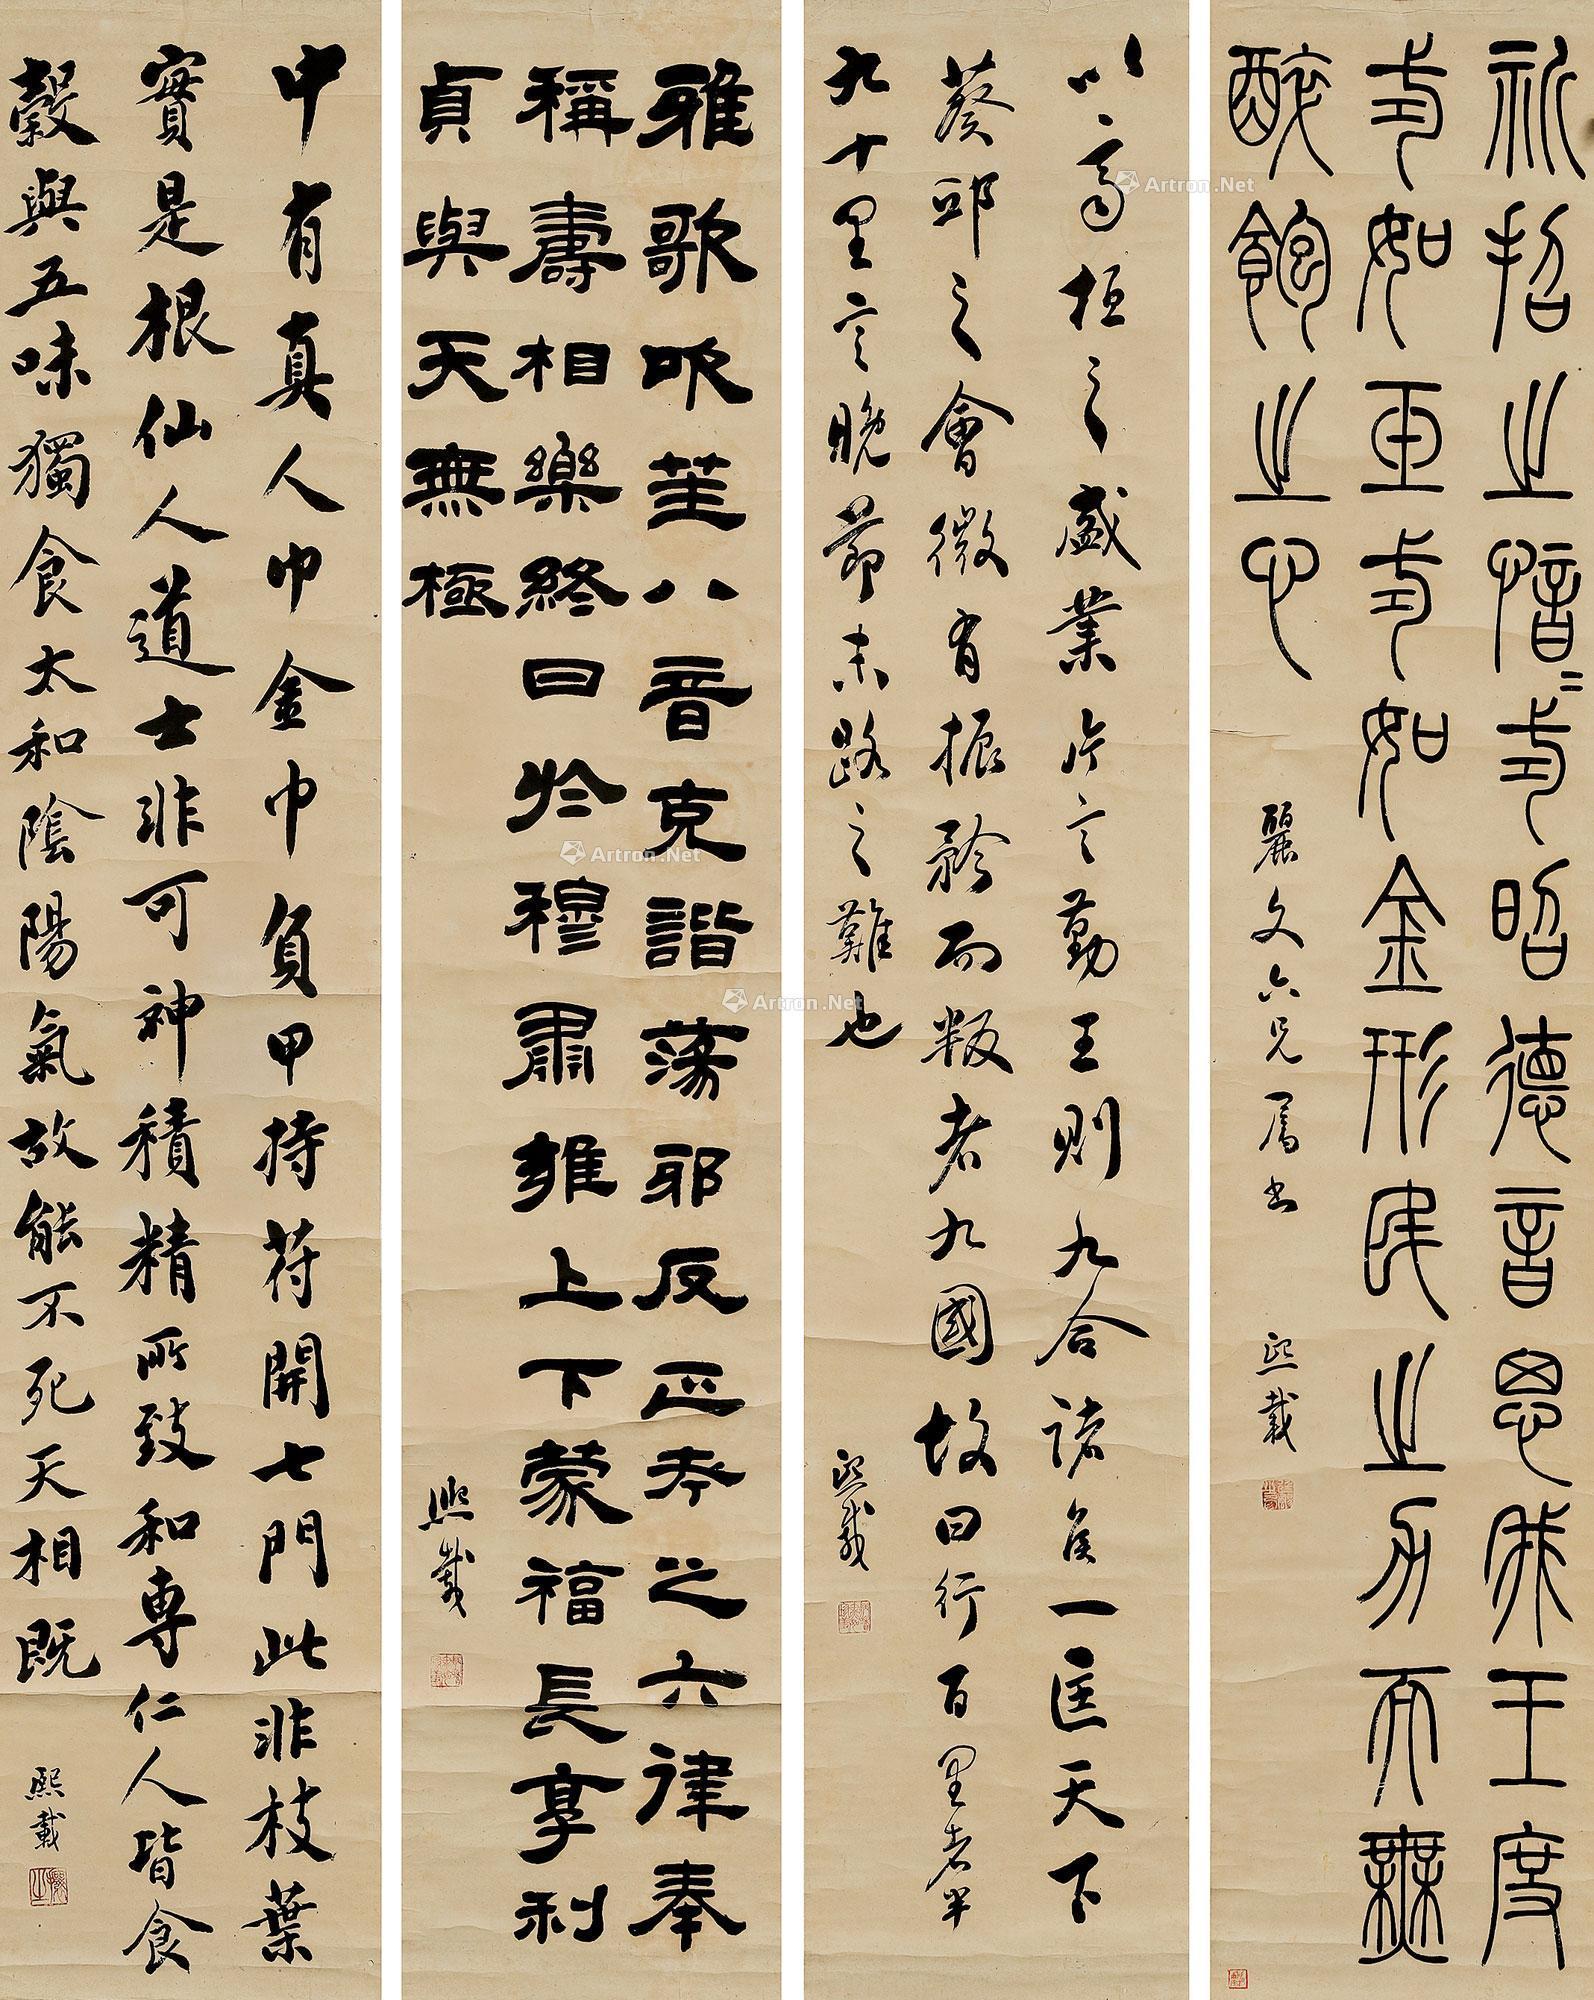 祈招之愔=式昭德音思我王度
式如玉式如金形民之力而無
醉飽之心
麗文六兄屬書
熙載
以齊桓之盛業片言勤王則九合諸侯一匡天下
葵邱之會微有振矜而叛者九國故曰行百里者半
九十里言晚節末路之難也
熙載
雅歌吹笙八音克諧蕩邪反正奉之六律奉
稱壽相樂終日於穆肅雍上下蒙福長享利
貞與天無極
熙載
中有真人巾金巾負甲持符開七門此非枝葉
實是根仙人道士非可神積精所致和專仁人皆食
穀與五味獨食太和陰陽氣故能不死天相既
熙載
Artron.Net
Artron.Net
Artron.Net